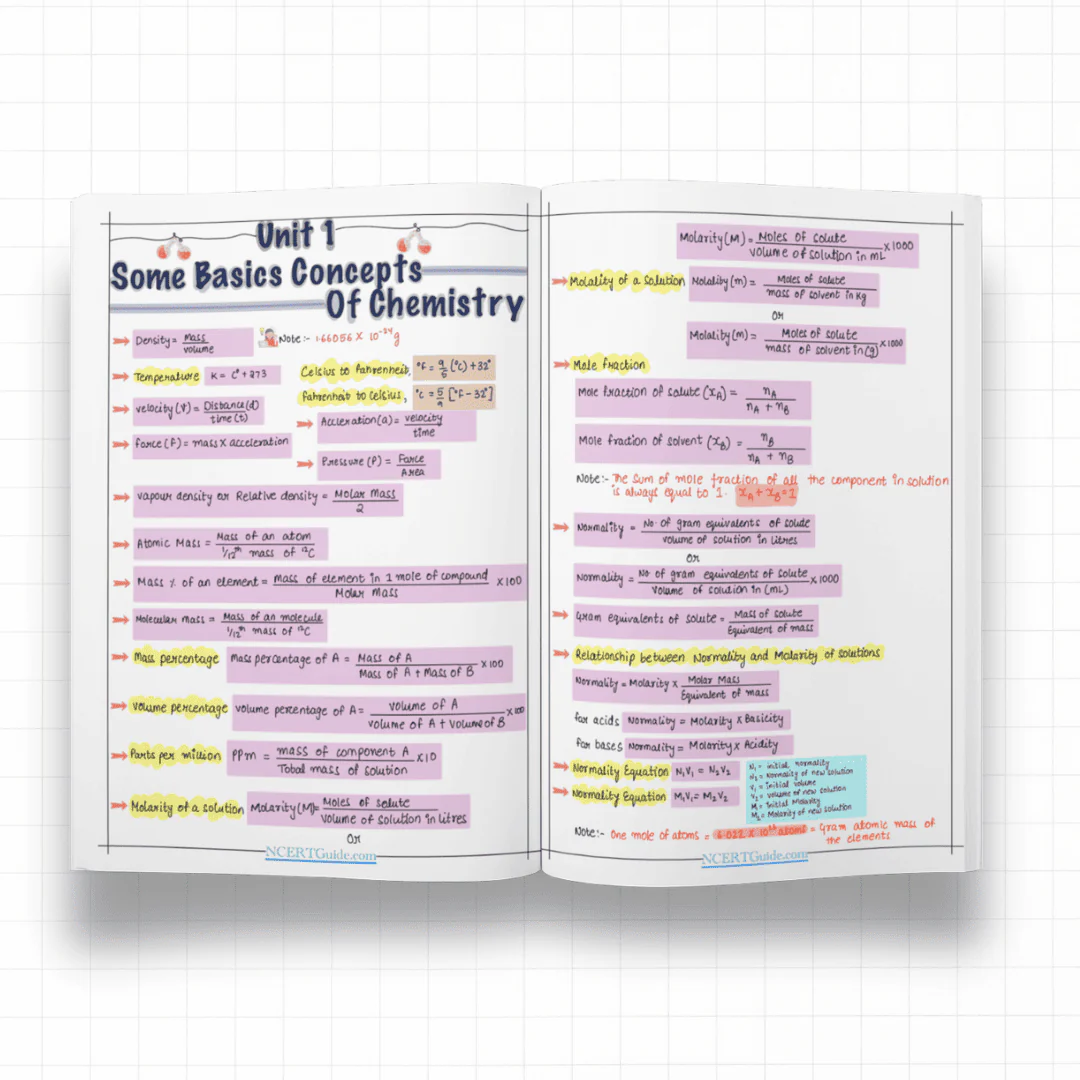 Unit 1
Some Basics Concepts
Of Chemistry
Density = Mass / volume
Note :- 1.66056 X 10⁻²⁴ g
Temperature K = C° + 273
Celsius to Fahrenheit, °F = 9/5 (°C) + 32°
Fahrenheit to Celsius, °C = 5/9 [°F - 32°]
velocity (v) = Distance(d) / time (t)
Accleration(a) = velocity / time
force (F) = mass X acceleration
Pressure (P) = Force / Area
vapour density or Relative density = Molar Mass / 2
Atomic Mass = Mass of an atom / 1/12th mass of ¹²C
Mass % of an element = mass of element in 1 mole of compound / Molar mass X 100
Molecular mass = Mass of an molecule / 1/12th mass of ¹²C
Mass percentage Mass percentage of A = Mass of A / Mass of A + Mass of B X 100
volume percentage volume percentage of A = volume of A / volume of A + volume of B X 100
Parts per million PPm = mass of component A / Total mass of solution X 10
Molarity of a solution Molarity(M) = Moles of solute / volume of solution in litres
Or
NCERTGuide.com
Molarity(M) = Moles of solute / volume of solution in mL X 1000
Molality of a solution Molality(m) = Moles of solute / mass of solvent in Kg
Or
Molality(m) = Moles of solute / mass of solvent in (g) X 1000
Mole fraction
Mole fraction of solute (xA) = nA / nA + nB
Mole fraction of solvent (xB) = nB / nA + nB
Note:- The sum of mole fraction of all the component in solution
is always equal to 1. xA + xB = 1
Normality = No. of gram equivalents of solute / volume of solution in litres
Or
Normality = No of gram equivalents of solute / volume of solution in (mL) X 1000
Gram equivalents of solute = Mass of solute / Equivalent of mass
Relationship between Normality and Molarity of solutions
Normality = Molarity X Molar Mass / Equivalent of mass
for acids Normality = Molarity X Basicity
for bases Normality = Molarity X Acidity
Normality Equation N₁V₁ = N₂V₂
Normality Equation M₁V₁ = M₂V₂
N₁ = initial normality
N₂ = Normality of new solution
V₁ = initial volume
V₂ = volume of new solution
M₁ = initial Molarity
M₂ = Molarity of new solution
Note:- One mole of atoms = 6.022 X 10²³ atoms = Gram atomic mass of
the elements
NCERTGuide.com